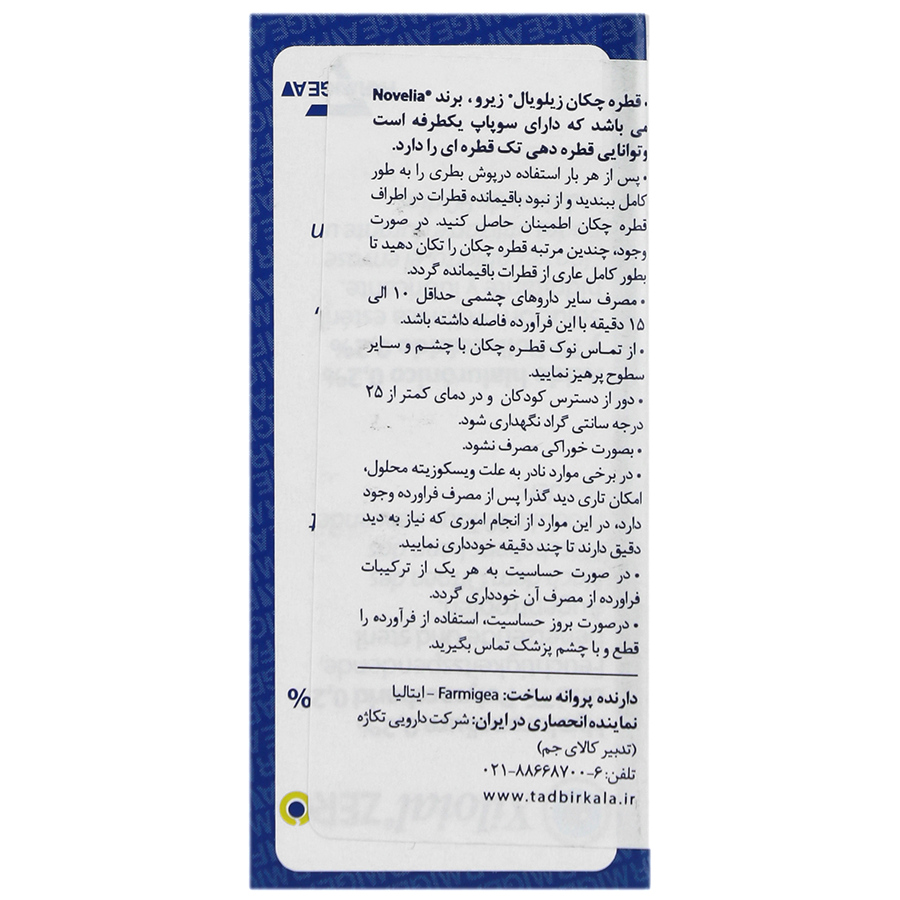 • قطره چکان زیلویال® زیرو، برند Novelia®
می باشد که دارای سوپاپ یکطرفه است
وتوانایی قطره دهی تک قطره ای را دارد.
• پس از هر بار استفاده درپوش بطری را به طور
کامل ببندید و از نبود باقیمانده قطرات در اطراف
قطره چکان اطمینان حاصل کنید. در صورت
وجود، چندین مرتبه قطره چکان را تکان دهید تا
بطور کامل عاری از قطرات باقیمانده گردد.
• مصرف سایر داروهای چشمی حداقل ۱۰ الی
۱۵ دقیقه با این فرآورده فاصله داشته باشد.
• از تماس نوک قطره چکان با چشم و سایر
سطوح پرهیز نمایید.
• دور از دسترس کودکان و در دمای کمتر از ۲۵
درجه سانتی گراد نگهداری شود.
• بصورت خوراکی مصرف نشود.
• در برخی موارد نادر به علت ویسکوزیته محلول،
امکان تاری دید گذرا پس از مصرف فراورده وجود
دارد، در این موارد از انجام اموری که نیاز به دید
دقیق دارند تا چند دقیقه خودداری نمایید.
• در صورت حساسیت به هر یک از ترکیبات
فراورده از مصرف آن خودداری گردد.
• درصورت بروز حساسیت، استفاده از فرآورده را
قطع و با چشم پزشک تماس بگیرید.
دارنده پروانه ساخت: Farmigea – ایتالیا
نماینده انحصاری در ایران: شرکت دارویی تکاژه
(تدبیر کالای جم)
تلفن: ۶-۸۸۶۶۸۷۰۰-۰۲۱
www.tadbirkala.ir
%